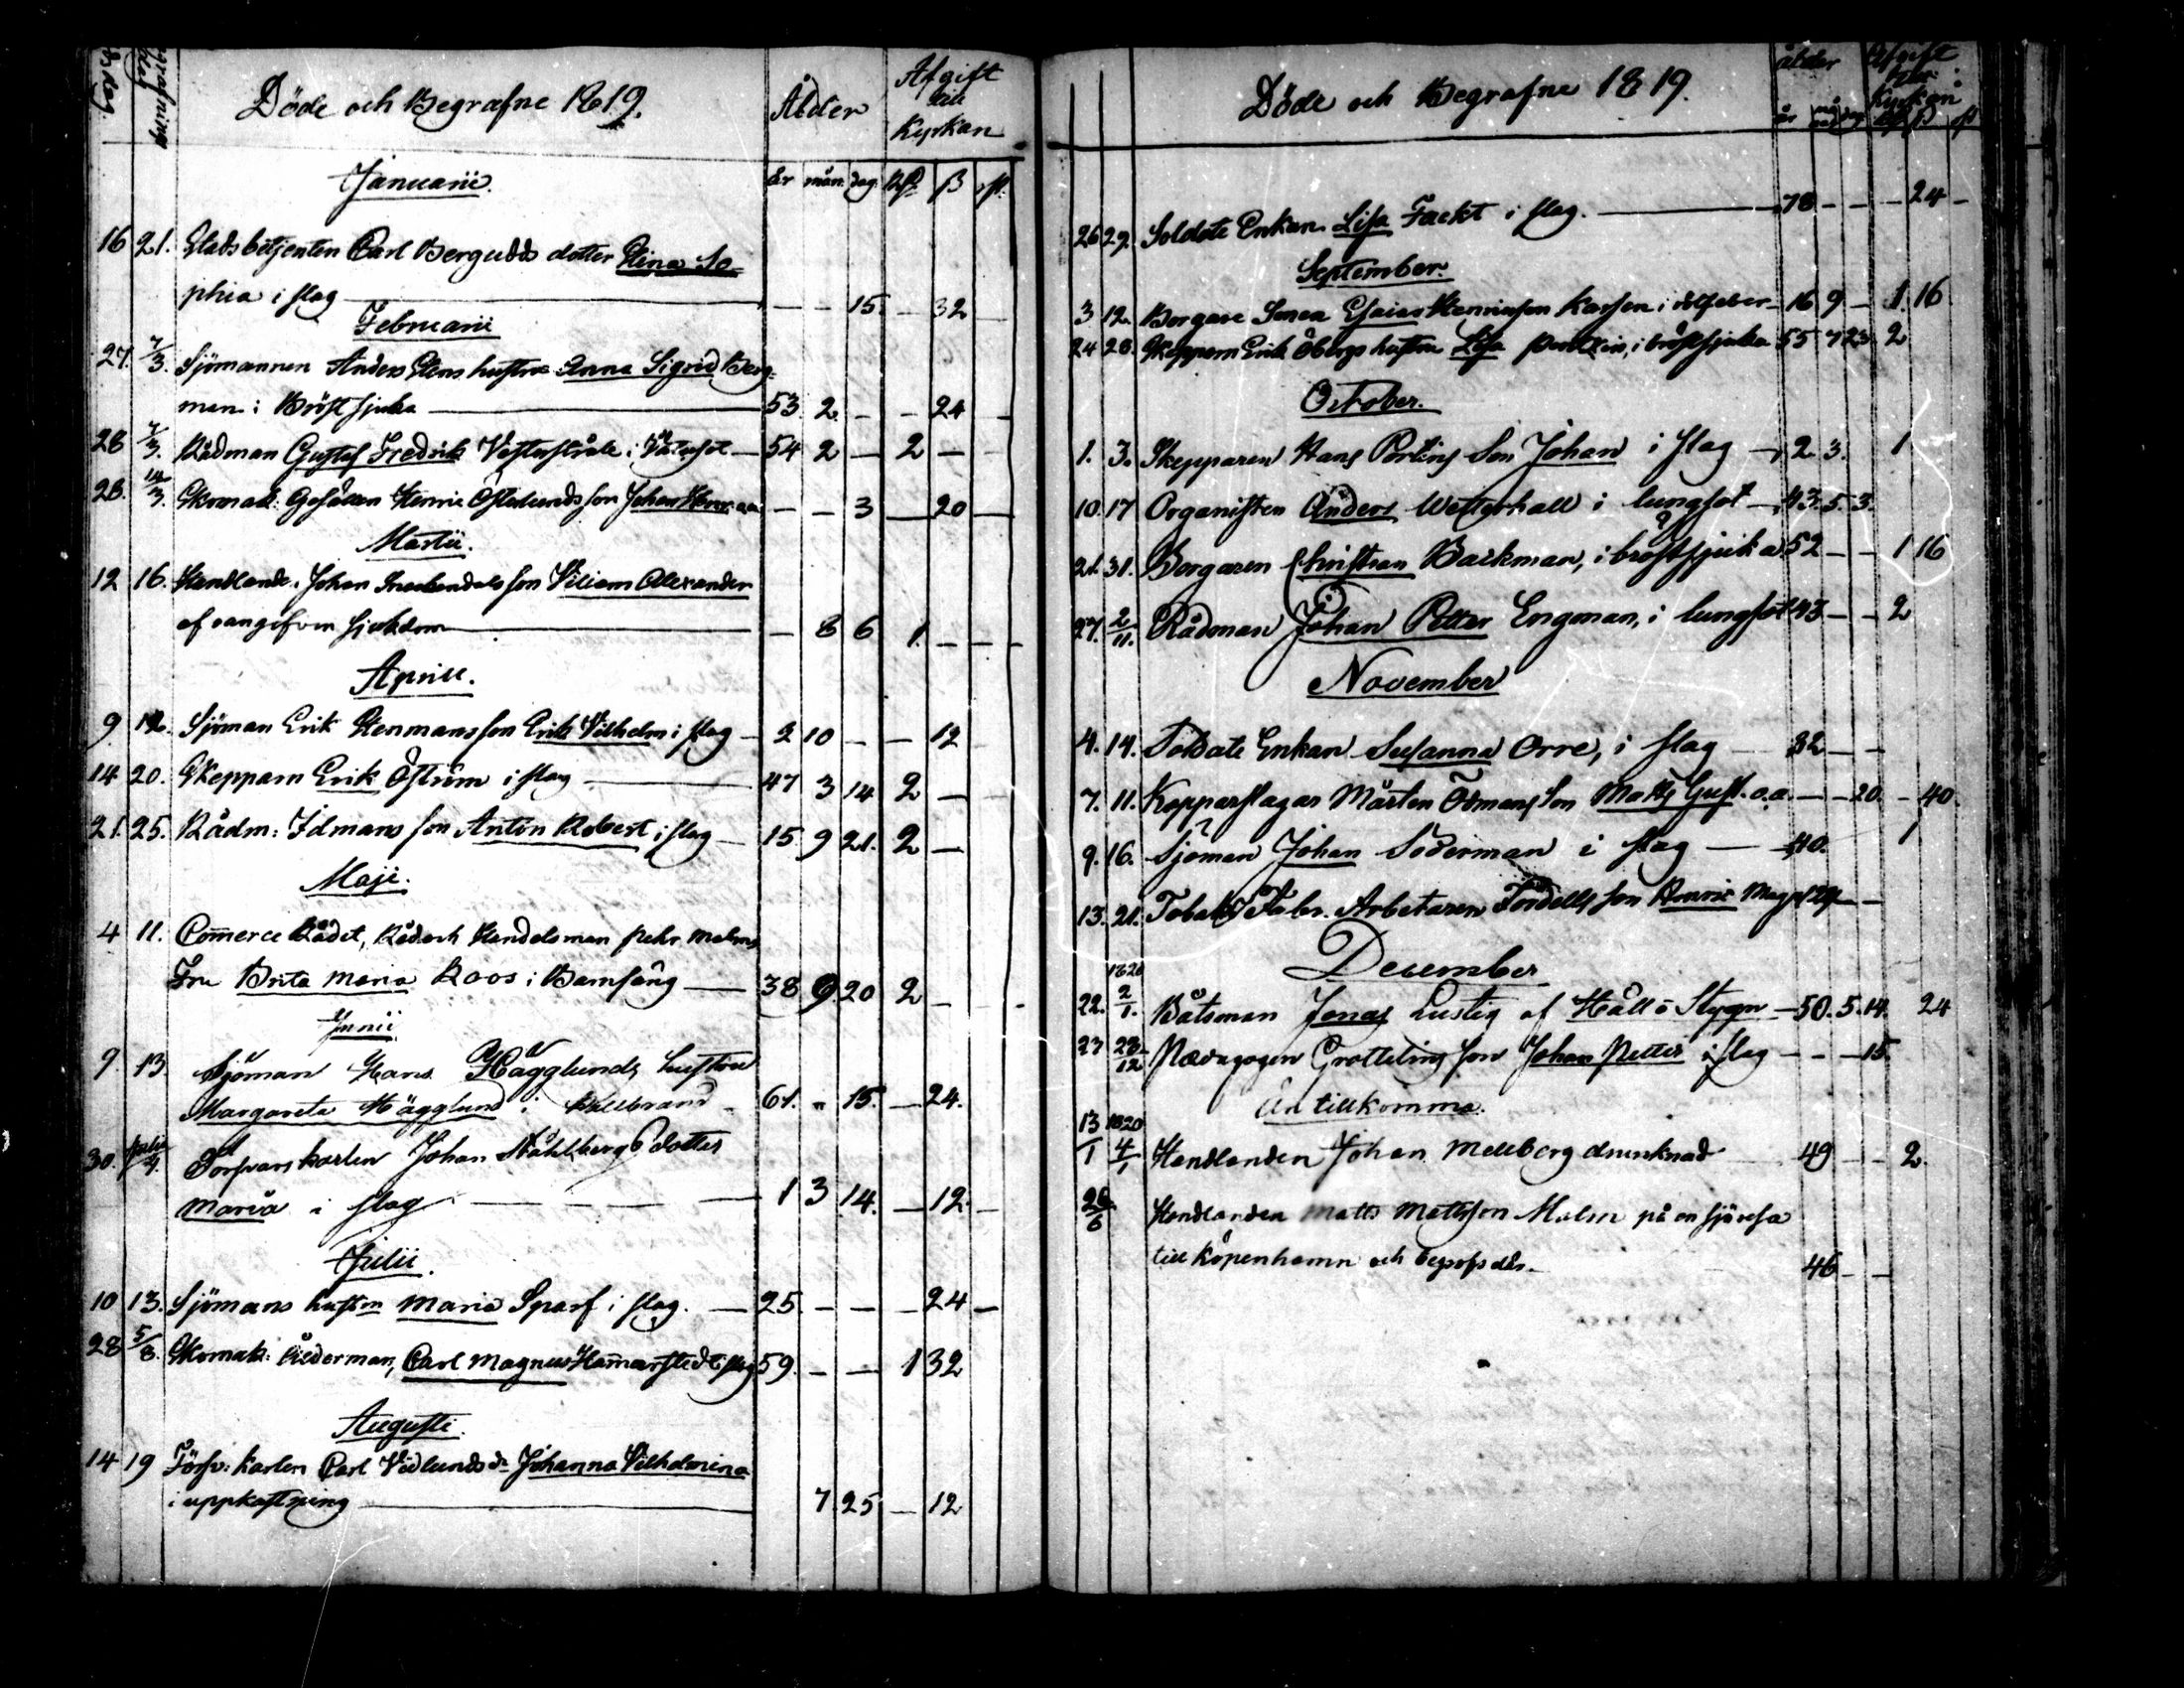 Döde och Begrafne 1819.
Ålder
Afgift till Kyrkan
år mån. dag. Rd. ß rst.
Januarii.
16 21. Stadsbetjenten Carl Bergudds dotter Stina So-
phia i slag — — 15. — 32 —
Februarii
27. 7/3. Sjömannen Anders Elens hustru Anna Sigrid Berg-
man i Bröstsjuka 53 2. — — 24 —
28 7/3. Rådman Gustaf Fredrik i 54 2 — 2 —
28. 14/3. Skomak: Gesällen Henric Österlunds son Johan — — 3 — 20 —
Martii.
12 16. Handland. Johan son Viliam Allexander
af oangifven sjukdom — 8 6 1. — —
Aprill.
9. 12. Sjöman Erik Stenmans son Erik Vilhelm i slag — 2 10 — — 12
14 20. Skepparn Erik Öström i slag 47 3 14 2 —
21. 25. Rådm: Idmans son Anton Robert i slag — 15 9 21. 2 —
Maji.
4 11. Commerce Rådet, Råd och Handelsman Pehr Malms
Fru Brita Maria Roos i Barnsäng — 38 9 20 2 —
Junii
9. 13 Sjöman Hans Hägglunds hustru
Margareta Hägglund i Kallbrand 61. „ 15. — 24.
30. Julii 4. Försvarskarlen Johan Ståhlbergs dotter
Maria i slag — 1 3 14. — 12. —
Julii.
10 13. Sjömans hustru Maria Sparf i slag. — 25 — — — 24 —
28 5/8. Skomak: Ålderman, Carl Magnus Hammarstedt i slag 59. — — 1 32
Augusti.
14 19 Försv: karlen Carl Vidlunds dr Johanna Vilhelmina
i uppkastning 7. 25 — 12
Döde och Begrafne 1819.
ålder
Afgift till Kyrkan
26 29. Soldate Enkan Lisa Fackt i slag. — 78 — — — 24 —
September.
3 12. Borgare Sonen Esaias Henrikson Karsen i rötfeber — 16 9 — 1. 16
24 28. Skepparn Erik Öbergs hustru Lisa i bröstsjuka 55 7 23 2
October.
1. 3. Skepparen Hans Porlins Son Johan i slag — 2. 3. 1
10. 17 Organisten Anders Westerhall i lungsot — 43. 5. 3.
21. 31. Borgaren Christian Backman, i bröstsjuka 52 — — 1 16
27. 2/11. Rådman Johan Petter Engman, i lungsot 43 — — 2
November
4. 14. Soldate Enkan Susanna Orre, i slag — 82 — —
7. 11. Kopparslagar Mårten Ödmans Son Matts Gust. o.a. — — 20. — 40.
9. 16. Sjöman Johan Söderman i slag — 40. 1
13. 21. Tobaks Fabr. Arbetaren Fordells son Henric
December
1820
22. 2/1. Båtsman Jonas Lustig af Hällö Stygn — 50. 5. 14. 24
23 28/12 Pædagogen Grottelins son Johan Petter i slag — — — 15.
Än tillkomma.
1820
13/1 4/1 Handlanden Johan Mellberg drunknad 49 — — 2.
26/6 Handlanden Matts Mattsson Malm på en sjöresa
till Köpenhamn och begrofs där. — 46 — —